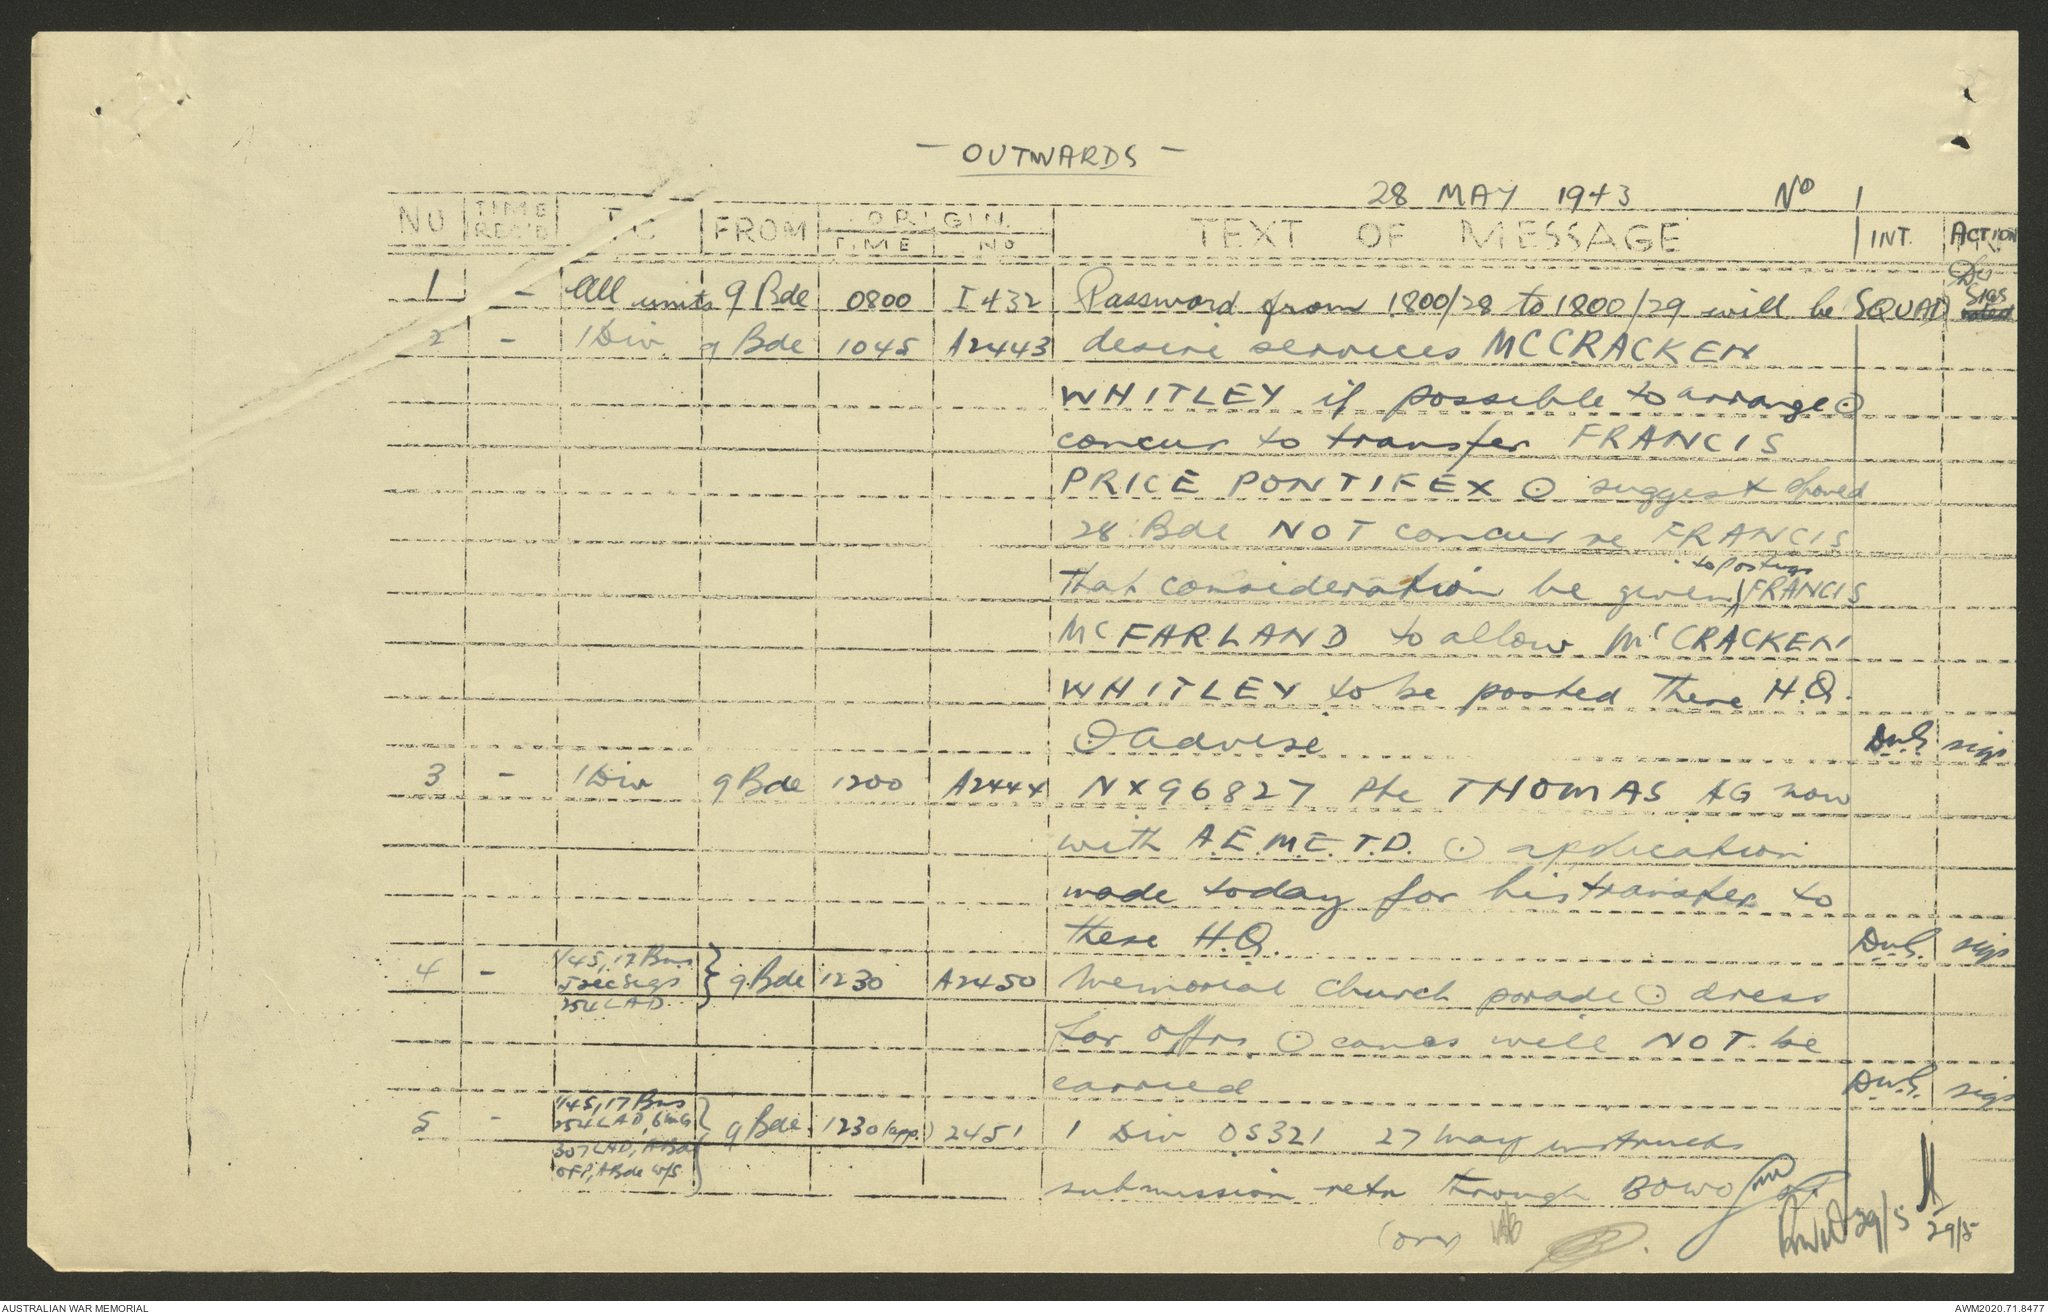 - OUTWARDS -
28 MAY 1943 No 1
NU TIME REC'D TO FROM ORIGIN. TEXT OF MESSAGE INT. ACTION
TIME No
1 - All units 9 Bde 0800 I 432 Password from 1800/28 to 1800/29 will be SQUAD Sigs
2 - 1 Div 9 Bde 1045 A2443 desire services MCCRACKEN
WHITLEY if possible to arrange ⊙
concur to transfer FRANCIS
PRICE PONTIFEX ⊙ suggest should
28 Bde NOT concur re FRANCIS
that consideration be given to posting FRANCIS
McFARLAND to allow McCRACKEN
WHITLEY to be posted these H.Q.
⊙ advise sigs
3 - 1 Div 9 Bde 1200 A2444 NX96827 Pte THOMAS AG now
with A.E.M.E.T.D. ⊙ application
made today for his transfer to
these H.Q. sigs
1/45, 17 Bns
4 - J Sec Sigs 9 Bde 1230 A2450 Memorial Church parade ⊙ dress
254 LAD.
for offrs ⊙ canes will NOT be
carried sigs
1/45, 17 Bns
254 LAD,
5 - 9 Bde 1230 (app.) 2451 1 Div OS321 27 May instructs
307 LAD, A Bde
OFP, A Bde W/S
submission retn through BOWO
(over) 29/5 29/5
AUSTRALIAN WAR MEMORIAL AWM2020.71.8477